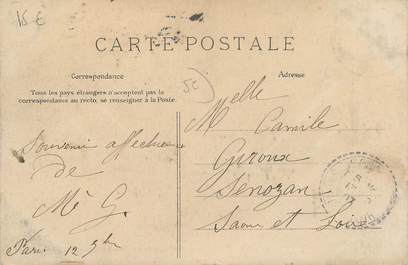 15 €
CARTE POSTALE
Correspondance
Adresse
Tous les pays étrangers n'acceptent pas la
correspondance au recto, se renseigner à la Poste.
5C
Melle
Camile
Giroux
Senozan
Saone et Loire
Souvenir affectueux
de
Me G.
Paris 12 9bre